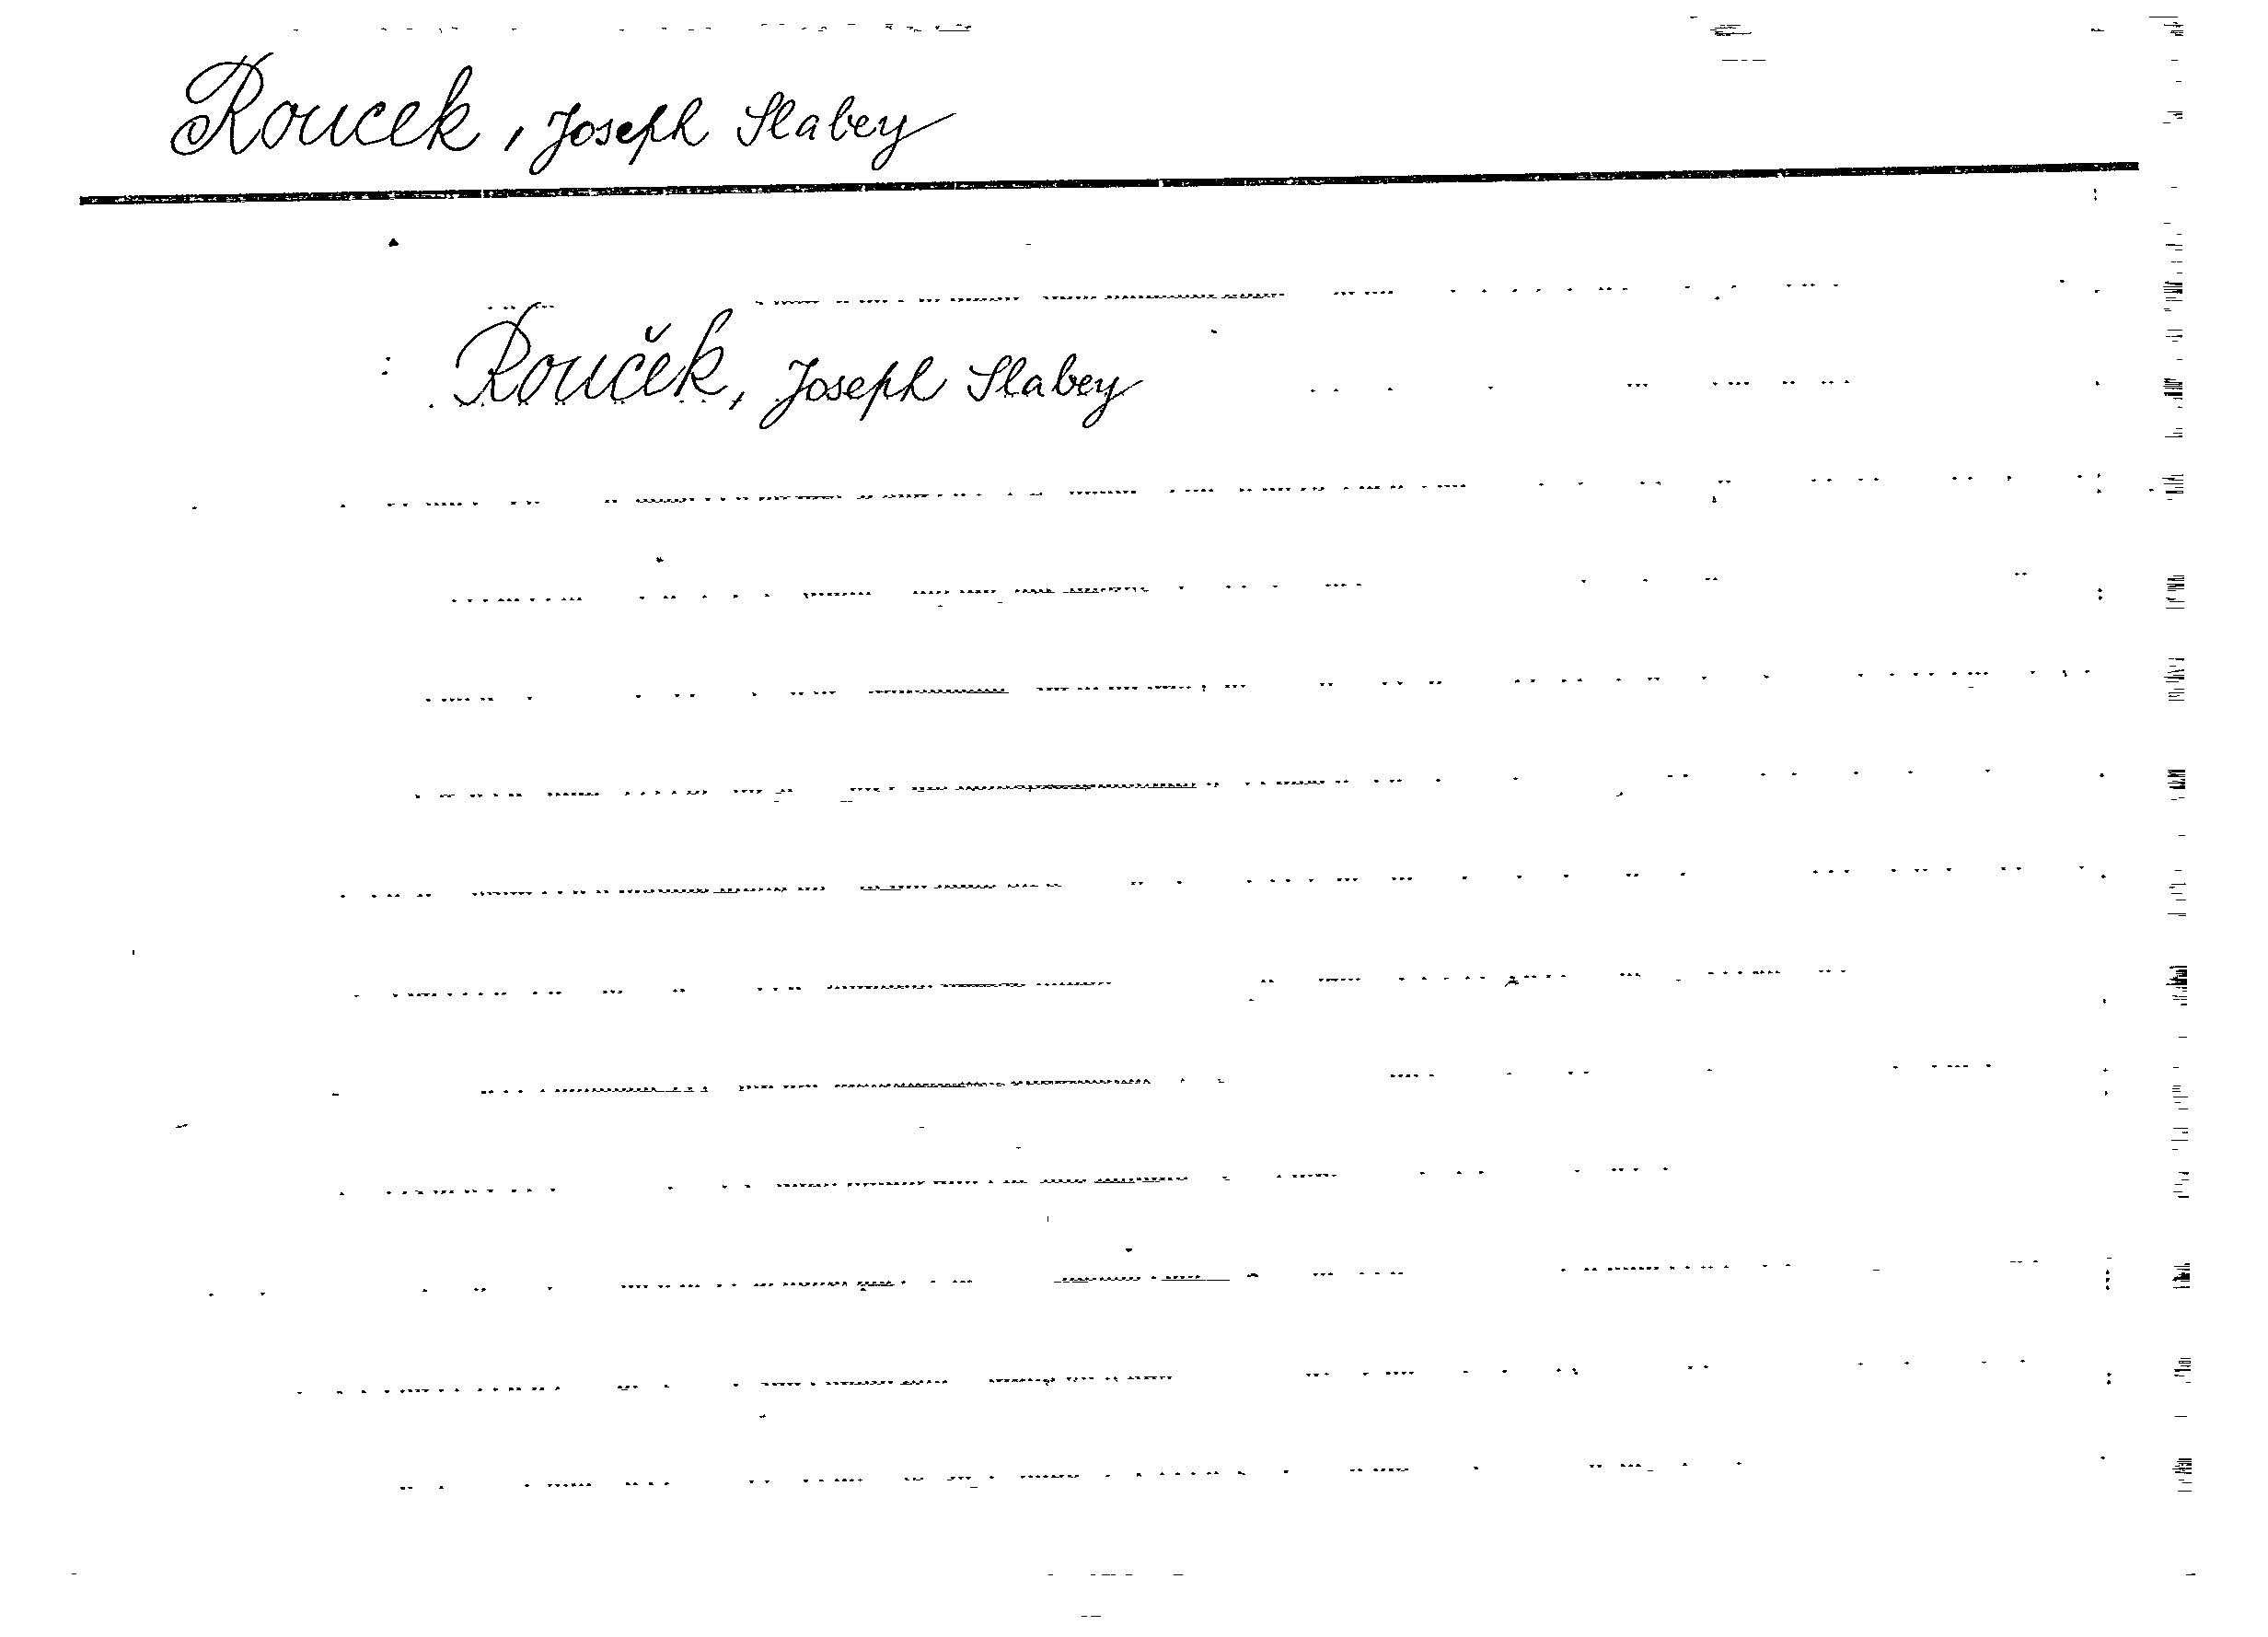 Roucek, Joseph Slabey
Rouček, Joseph Slabey